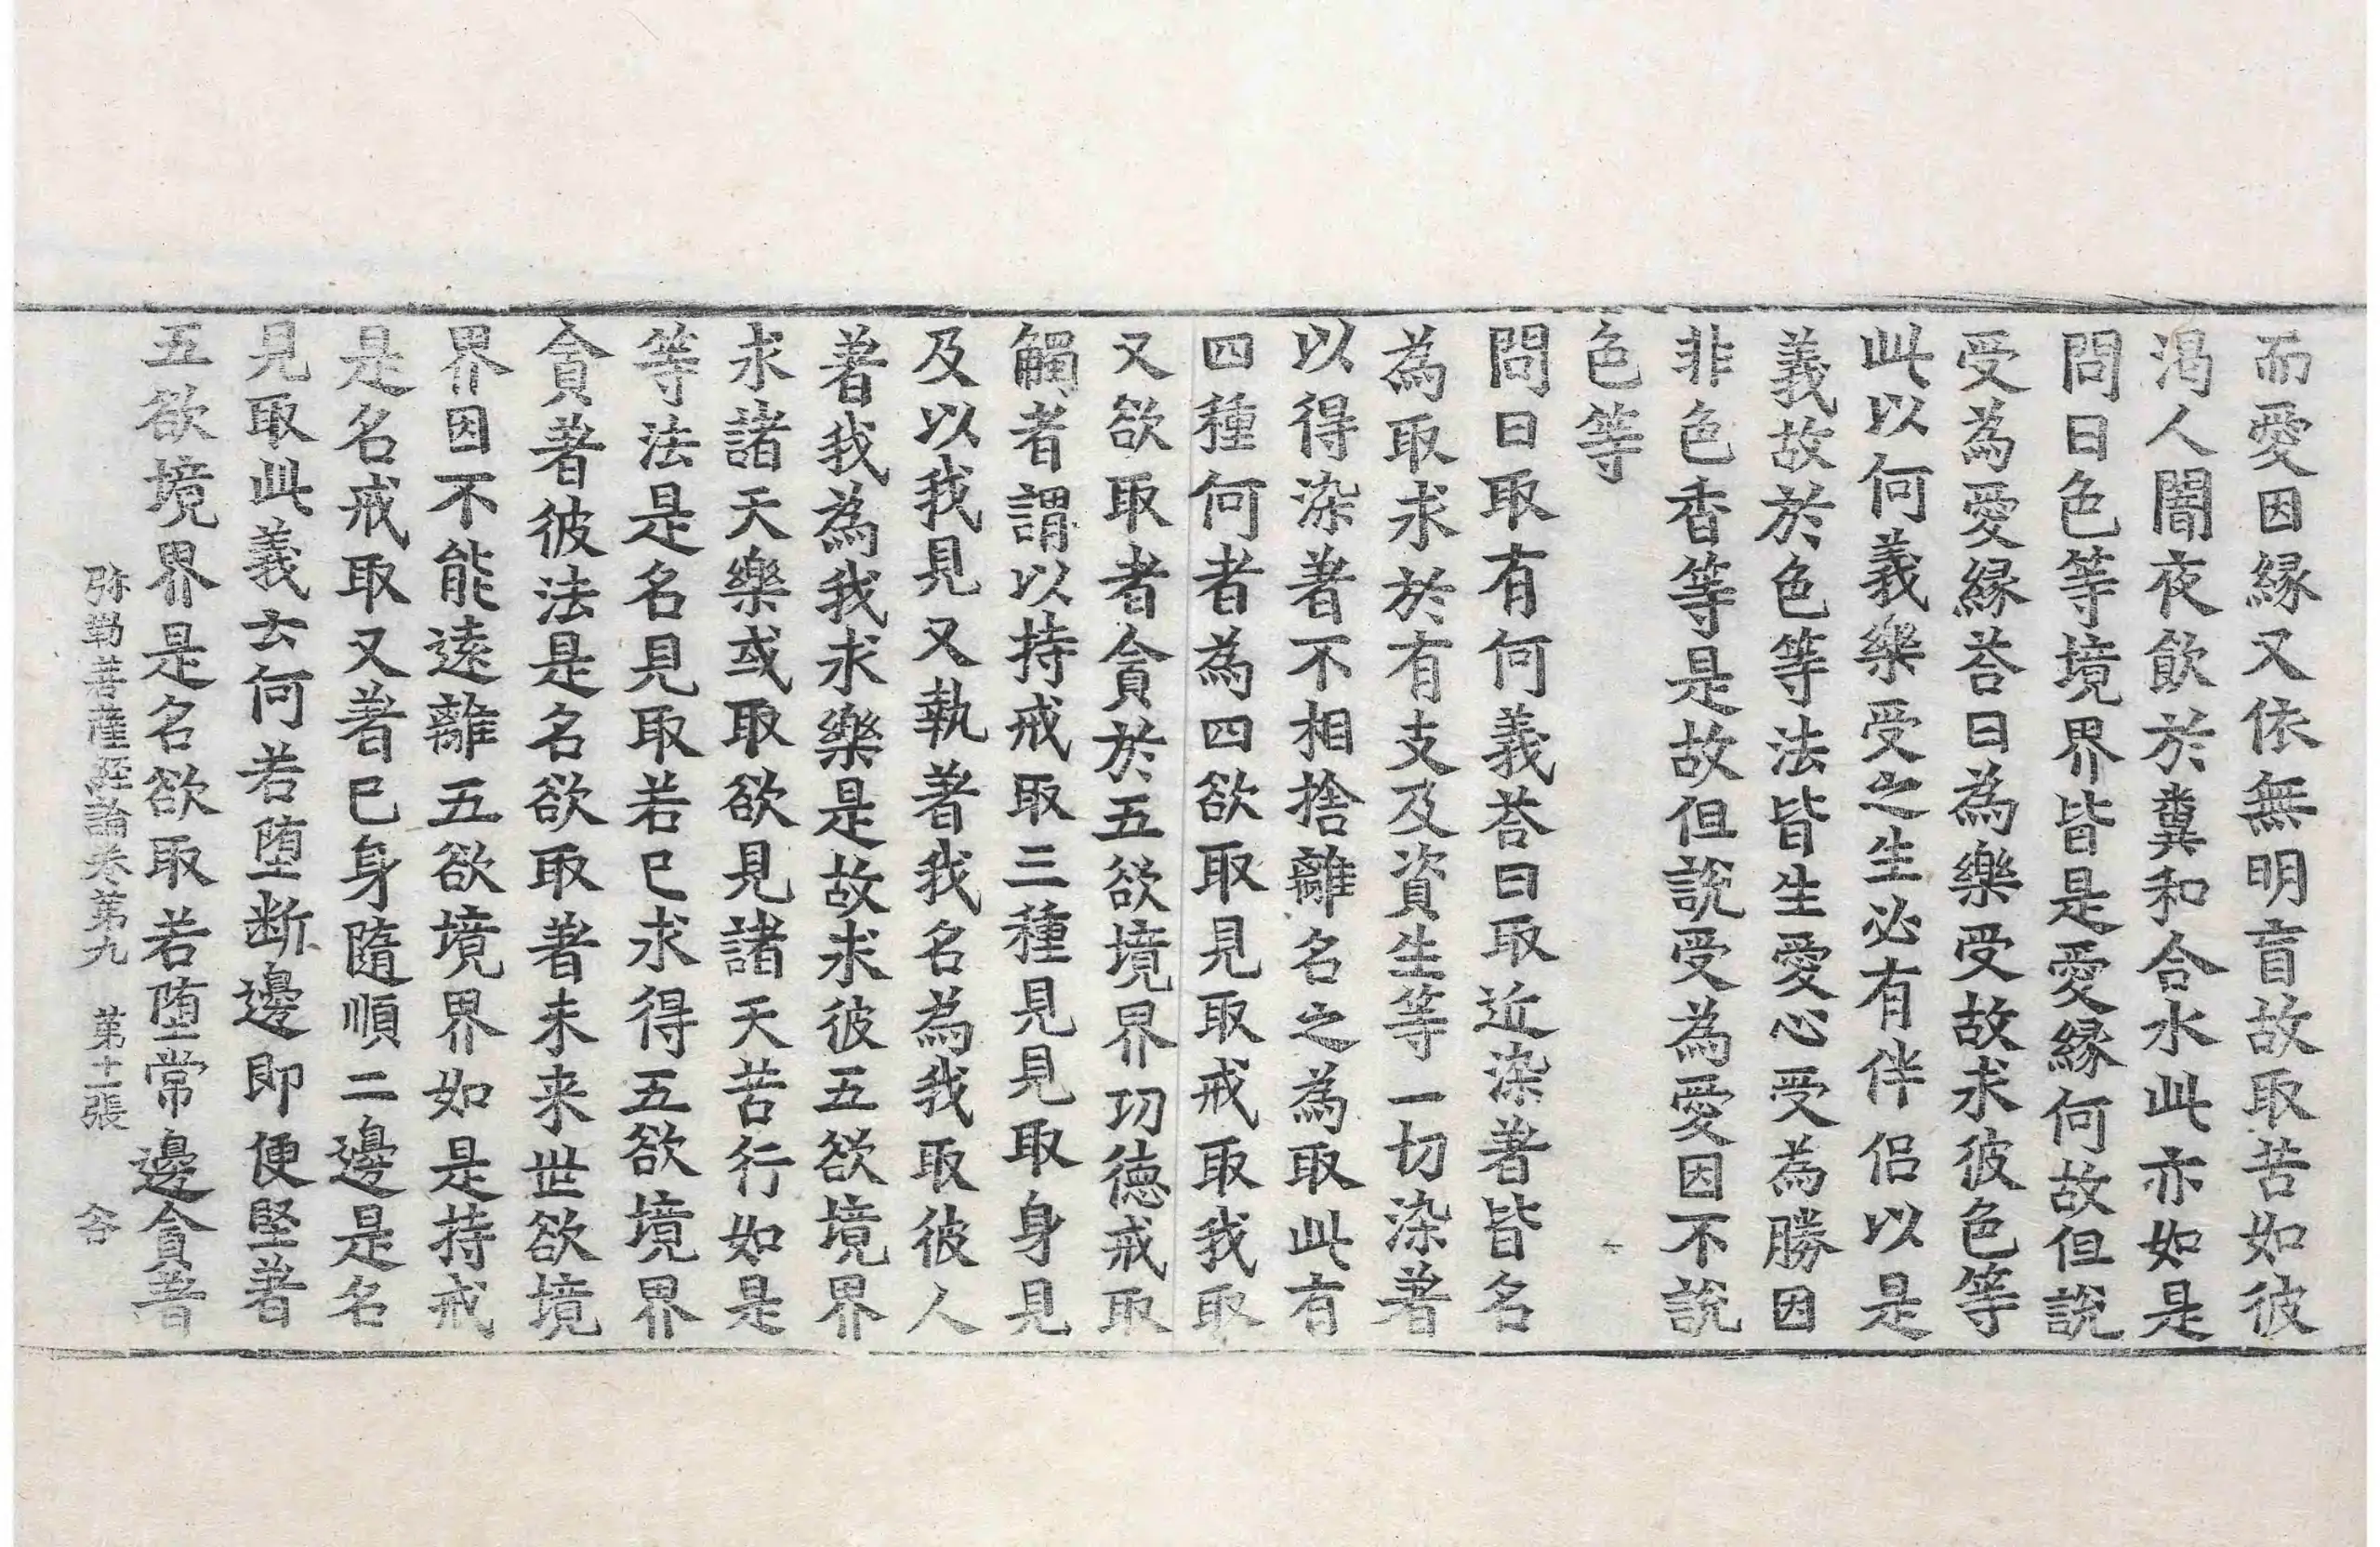 而愛因緣又依無明盲故取苦如彼
渴人闇夜飲於糞和合水此亦如是
問曰色等境界皆是愛緣何故但說
受為愛緣荅曰為樂受故求彼色等
此以何義樂受之生必有伴侣以是
義故於色等法皆生愛心受為勝因
非色香等是故但說受為愛因不說
色等
問曰取有何義荅曰取近染著皆名
為取求於有支及資生等一切染著
以得染著不相捨離名之為取此有
四種何者為四欲取見取戒取我取
又欲取者貪於五欲境界功德戒取
觸者謂以持戒取三種見見取身見
及以我見又執著我名為我取彼人
著我為我求樂是故求彼五欲境界
求諸天樂或取欲見諸天苦行如是
等法是名見取若巳求得五欲境界
貪著彼法是名欲取著未来世欲境
界因不能遠離五欲境界如是持戒
是名戒取又著巳身隨順二邊是名
見取此義云何若堕断邊即便堅著
五欲境界是名欲取若堕常邊貪著
弥勒菩薩經論卷第九 第十一張 谷